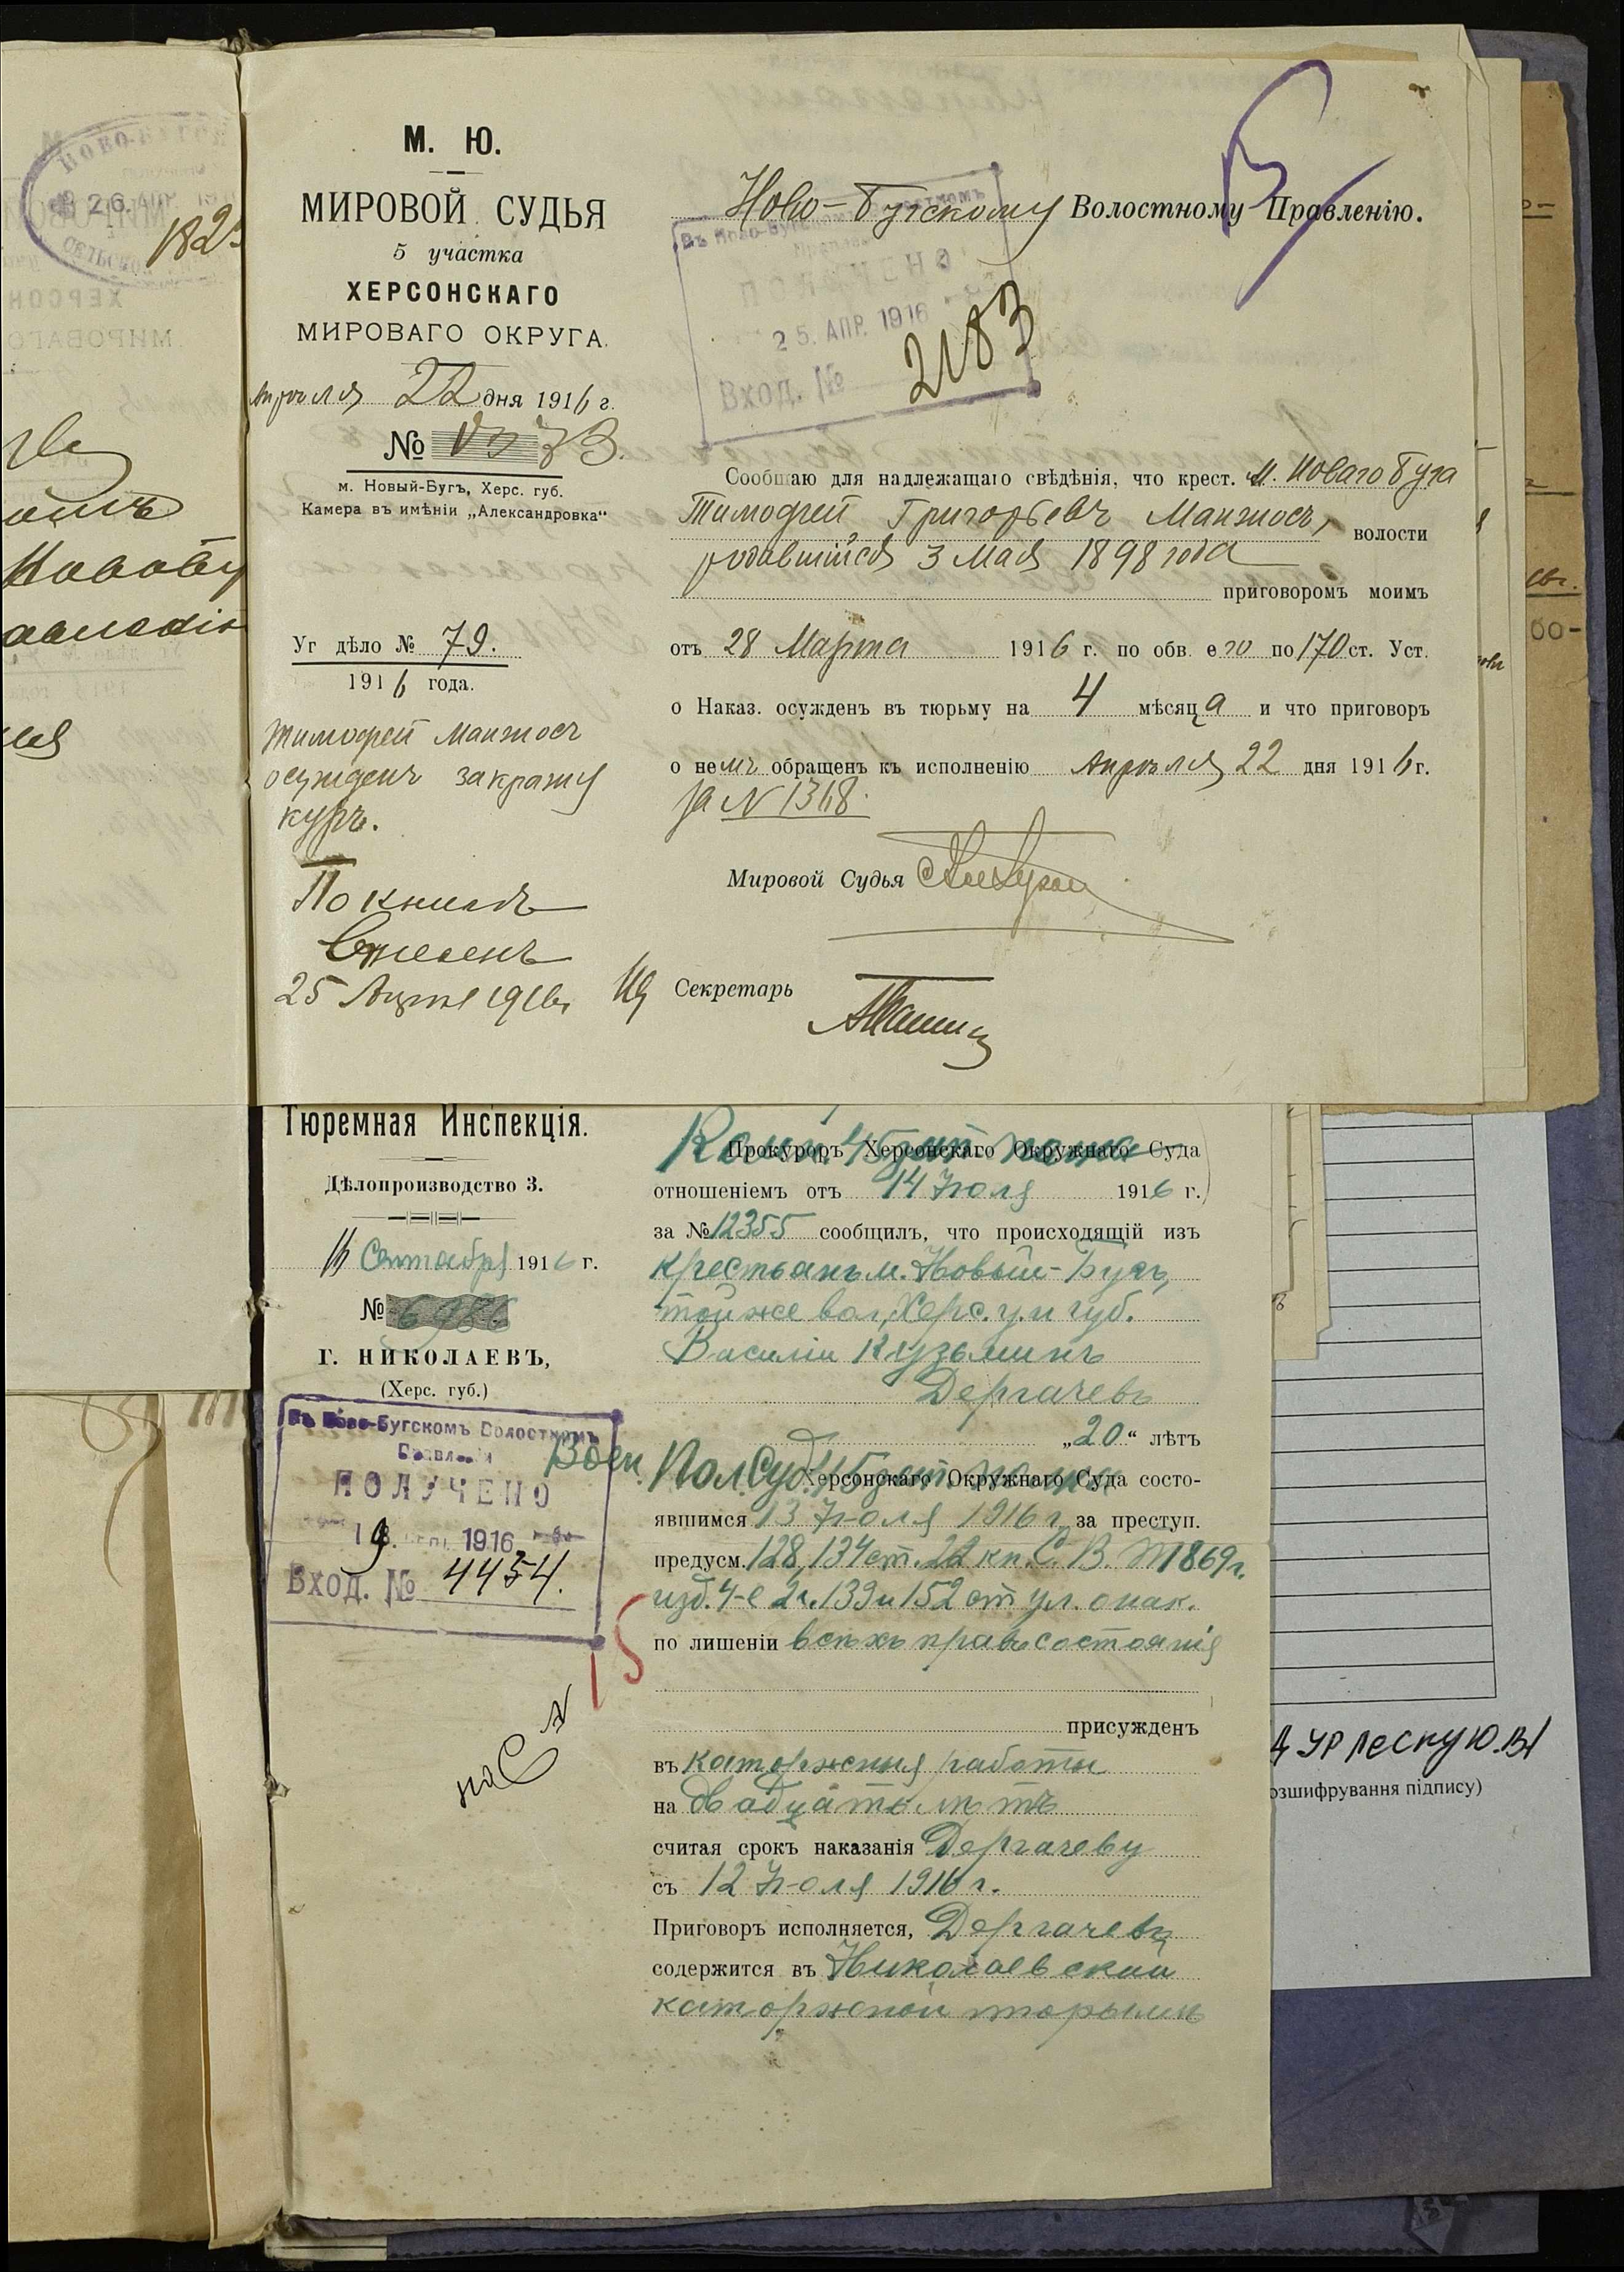 НОВО-БУГСК
26. АПР. 19
СЕЛЬСКО
182
М. Ю.
МИРОВОЙ СУДЬЯ
5 участка
ХЕРСОНСКАГО
МИРОВАГО ОКРУГА.
Апрѣля 22 дня 1916 г.
№
м. Новый-Бугъ, Херс. губ.
Камера въ имѣніи „Александровка“
Уг дѣло № 79.
1916 года.
Тимофей Манжосъ
осужденъ за кражу
куръ.
По книгѣ
Отмеченъ
25 Апреля 1916 г.
Ново-Бугскому Волостному Правленію.
Въ Ново-Бугскомъ Волостномъ
Правленіи
ПОЛУЧЕНО
25. АПР. 1916
Вход. № 2183
Сообщаю для надлежащаго свѣдѣнія, что крест. м. Новаго Буга
Тимофей Григорьевъ Манжосъ, волости
родившійся 3 Мая 1898 года
приговоромъ моимъ
отъ 28 Марта 1916 г. по обв. его по 170 ст. Уст.
о Наказ. осужденъ въ тюрьму на 4 мѣсяца и что приговоръ
о немъ обращенъ къ исполненію Апрѣля 22 дня 1916 г.
за № 1368.
Мировой Судья
Секретарь
Тюремная Инспекція.
Дѣлопроизводство 3.
16 Сентября 1916 г.
№
Г. НИКОЛАЕВЪ,
(Херс. губ.)
Въ Ново-Бугскомъ Волостномъ
Правленіи
ПОЛУЧЕНО
19. 1916
Вход. № 4454.
15
Прокуроръ Херсонскаго Окружнаго Суда
отношеніемъ отъ 14 Іюля 1916 г.
за № 12355 сообщилъ, что происходящій изъ
крестьянъ м. Новый-Бугъ,
той же вол., Херс. у. и губ.
Василій Кузьминъ
Дергачевъ
„20“ лѣтъ
Воен. Пол. Суд. Херсонскаго Окружнаго Суда состо-
явшимся 13 Іюля 1916 г. за преступ.
предусм. 128, 134 ст. 22 кн. С. В. П 1869 г.
изд. 4-е 2 ч. 139 и 152 ст ул. о нак.
по лишеніи всѣхъ правъ состоянія
присужденъ
въ каторжныя работы
на двадцать лѣтъ
считая срокъ наказанія Дергачеву
съ 12 Іюля 1916 г.
Приговоръ исполняется, Дергачевъ
содержится въ Николаевской
каторжной тюрьмѣ
озшифрування підпису)